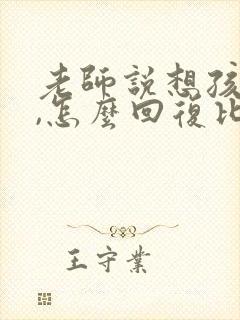 老師說想孩
,怎麼回復比
王守業